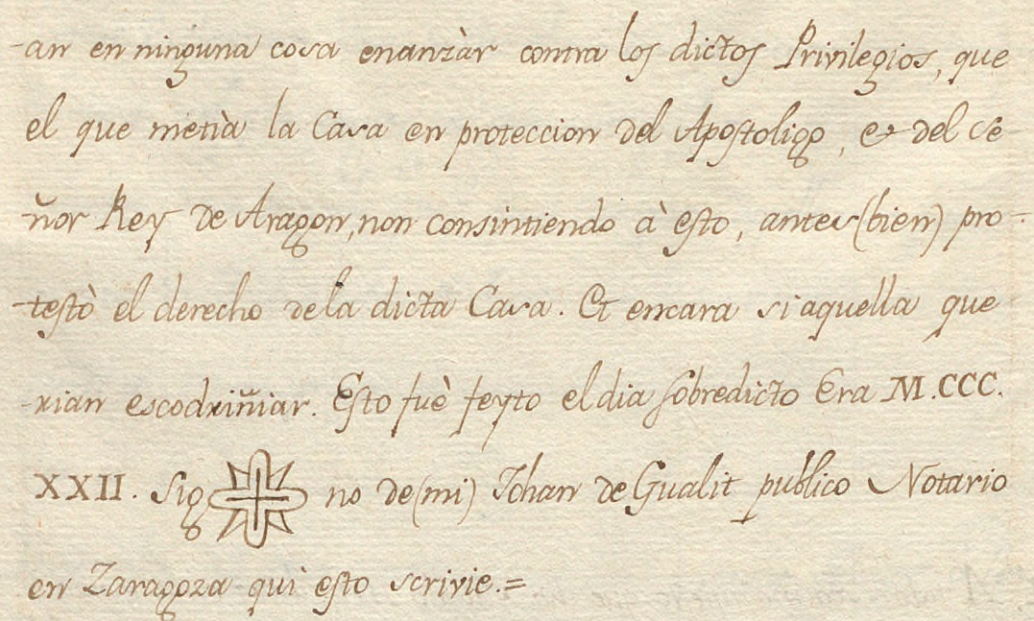 -an en ninguna cosa enanzàr contra los dictos Privilegios, que
el que metìa la Casa en proteccion del Apostoligo, et del Se
ñor Rey de Aragon, non consintiendo à esto, antes (bien) pro-
-testò el derecho dela dicta Casa. Et encara si aquella que
-rian escodriñiar. Esto fuè feyto el dia sobredicto Era M.CCC.
XXII. Sig no de (mi) Johan de Gualit publico Notario
en Zaragoza qui esto scrivie.=